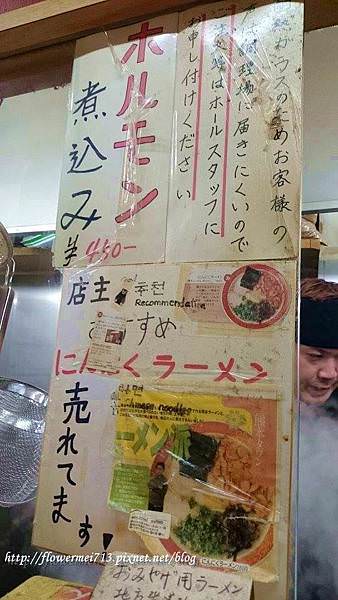 ガラスのためお客様の
声が調理場に届きにくいので
ご注文等はホールスタッフに
お申し付けください
ホルモン
煮込み
¥450-
店主
Recommendation
おすすめ
にんにくラーメン
売れてます!
chinese noodles
ーメン派
にんにくラーメン
おみやげ用ラーメン
http://flowermei713.pixnet.net/blog